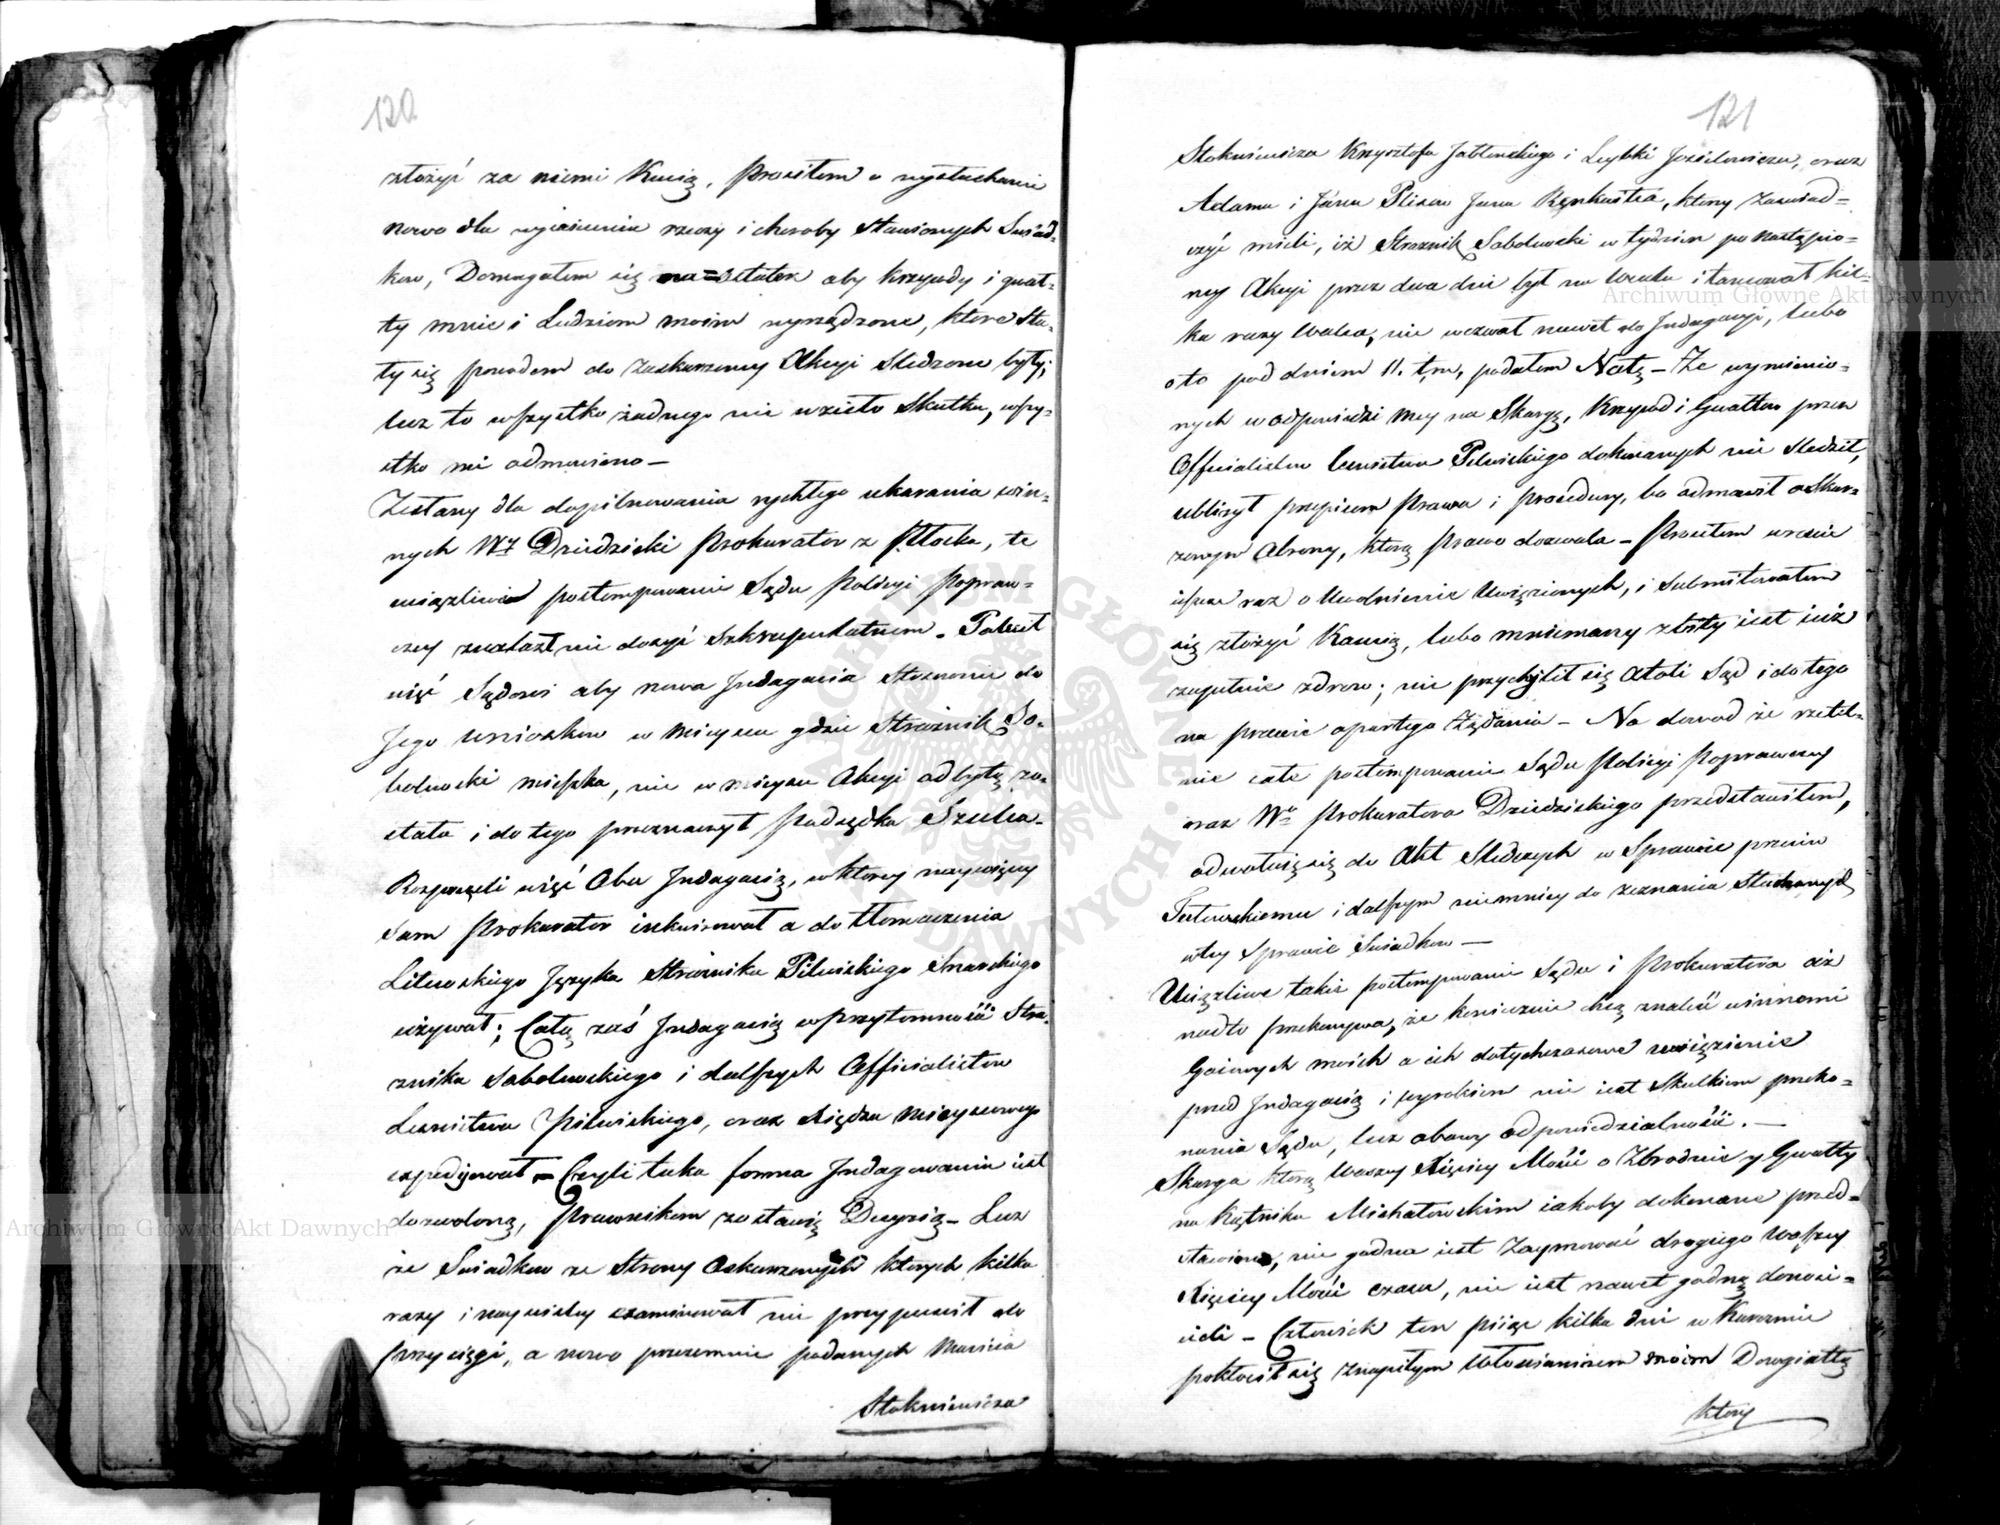 120
złożyć za niemi Kaucią, Prosiłem o wysłuchanie
nowo dla wyiaśnienia rzeczy i choroby stawionych Swiad-
kow, Domagałem się na=ostatek aby krzywdy i gwał-
ty mnie i Ludziom moim wyrządzone, które sta-
ły się powodem do zaskarzoney Akcyi śledzone były;
lecz to wszystko żadnego nie wzieło skutku, wszy-
stko mi odmowiono —
Zesłany dla dopilnowania rychłego ukarania win-
nych WJ Dziedzicki Prokurator z Płocka, te
uciążliwe postempowanie Sądu Policyi Popraw-
czey znalazł nie dosyć szkrupulatnem. Polecił
więć Sądowi aby nowa Indagacia stosownie do
Jego wniosków w mieyscu gdzie Strażnik So-
bolewski mieszka, nie w mieyscu Akcyi odbytą zo-
stała i do tego przeznaczył Podsędka Szulca.
Rozpoczęli więć Oba Indagacią, w ktorey naywięcey
sam Prokurator inkwirował a do tłomaczenia
Litewskiego Języka Strażnika Pilwiskiego
używał; Całą zaś Indagacią w przytomności Stra-
żnika Sobolewskiego i dalszych Officialistow
Lesnictwa Pilwiskiego, oraz Xiędza mieyscowego
expedijował — Czyli taka forma Indagowania iest
dozwoloną, Prawnikom zostawią Decyzią — Lecz
że Swiadkow ze strony Oskarzonych ktorych kilka
razy i nayscisley examinował nie przypuscił do
przysięgi, a nowo przezemnie podanych Macieia
Stokniewicza
121
Stokniewicza Krzysztofa Jabłonskiego i Leybki Joselowicza, oraz
Adama i Jana Plisow Jana, ktory zaswiad-
czyć mieli, iż Straznik Sobolewski w tydzien po nastąpio-
ney Akcyi przez dwa dni był na Weselu i tancował kil-
ka razy Walca, nie wezwał nawet do Indagacyi, lubo
o to pod dniem 11. t,m, podałem Notę — Ze wymienio-
nych w odpowiedzi mey na Skargę, Krzywd i Gwałtow przez
Officialistow Lesnictwa Pilwiskiego dokonanych nie sledził,
ubliżył przepisom Prawa i procedury, bo odmowił oskar-
zonym Obrony, ktorą Prawo dozwala — Prosiłem wrescie
ieszcze raz o Uwolnienie Uwięzionych, i submitowałem
się złożyć Kaucią, lubo mniemany zbity iest iuż
zupełnie zdrow; nie przychylił się atoli Sąd i do tego
na prawie opartego Żądania — Na dowod że rzetel-
nie całe postempowanie Sądu Policyi Poprawczey
oraz Wo Prokuratora Dziedzickiego przedstawiłem,
odwołuię się do Akt sledczych w Sprawie przeciw
i dalszym niemniey do zeznania słuchanych
w tey Sprawie Swiadkow —
Uciążliwe takie postempowanie Sądu i Prokuratora aż
nadto przekonywa, że koniecznie chcą znaleść winnemi
Gaiowych moich a ich dotychczasowe uwięzienie
przed Indagacią i wyrokiem nie iest skutkiem przeko-
nania Sądu, lecz obawy odpowiedzialności. —
Skarga ktorą Waszey Xiążęcey Mości o Zbrodnie y Gwałty
na Kątniku Michałowskim iakoby dokonane przed-
stawiono, nie godna iest zaymować drogiego Waszey
Xiążęcey Mości czasu, nie iest nawet godną donosi-
cieli — Człowiek ten piiąc kilka dni w Karczmie
pokłocił się z napiłym Włoscianinem moim Dowgiałłą
ktory